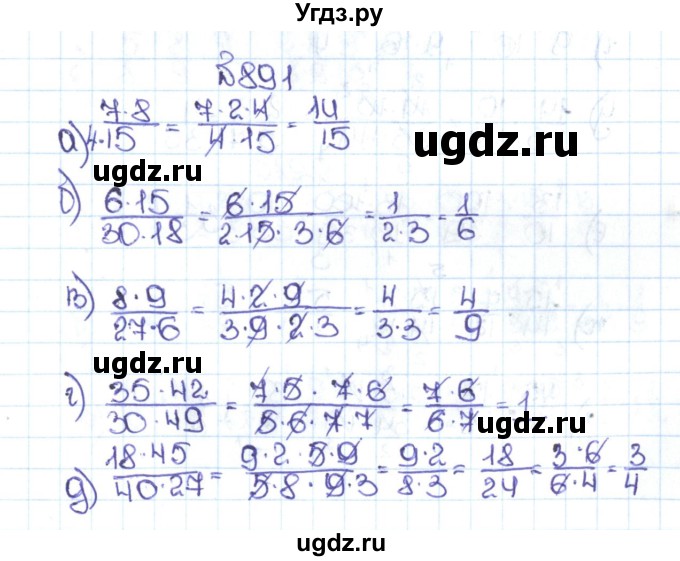 Угдз.ру
№891
а) 7·8/4·15 = 7·2·4/4·15 = 14/15
ugdz.ru
ugdz.ru
б) 6·15/30·18 = 6·15/2·15·3·6 = 1/2·3 = 1/6
в) 8·9/27·6 = 4·2·9/3·9·2·3 = 4/3·3 = 4/9
ugdz.ru
г) 35·42/30·49 = 7·5·7·6/5·6·7·7 = 7·6/6·7 = 1
ugdz.ru
д) 18·45/40·27 = 9·2·5·9/5·8·9·3 = 9·2/8·3 = 18/24 = 3·6/6·4 = 3/4
ugdz.ru
ugdz.ru